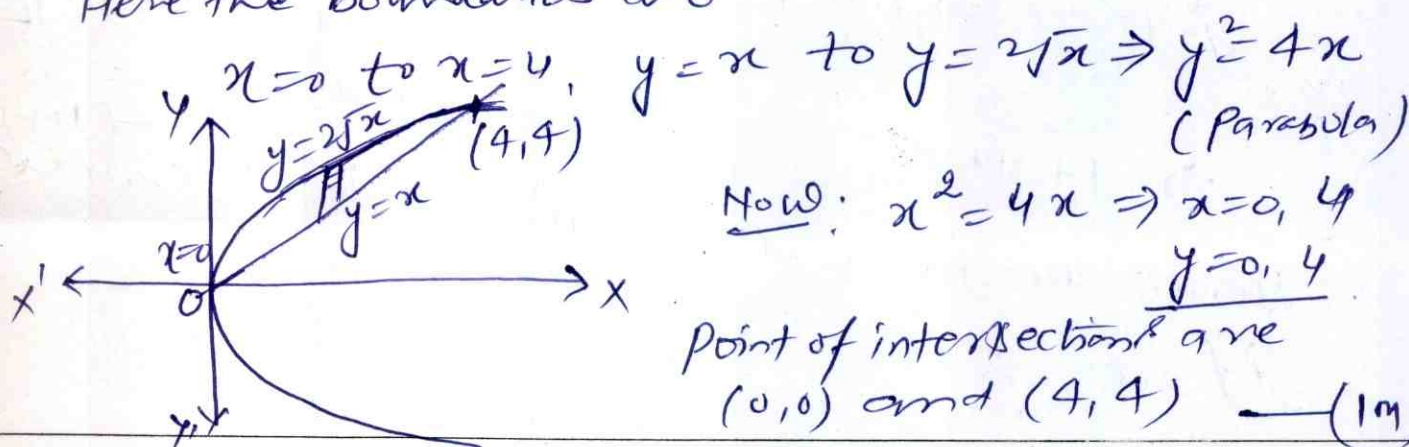 Here the boundaries are
x=0 to x=4, y=x to y=2√x ⇒ y²=4x
(Parabola)
Y
y=2√x
(4,4)
y=x
x=0
X'
O
X
Y'
Now: x²=4x ⇒ x=0, 4
y=0, 4
Point of intersections are
(0,0) and (4,4) —(1m